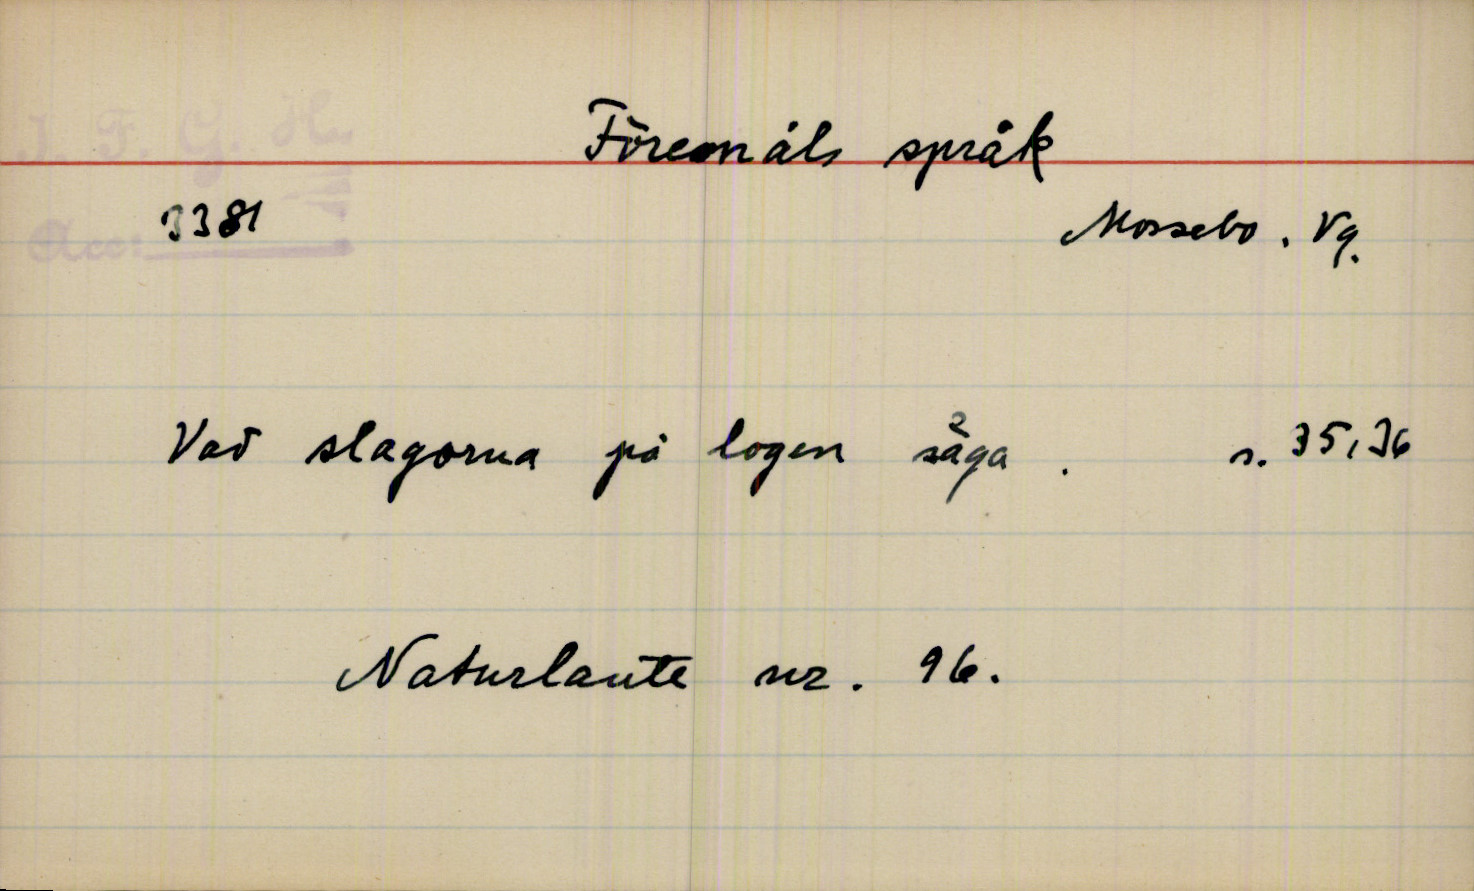 I. F. G. H.
Föremåls språk
Acc: 3381
Mossebo. Vg.
Vad slagorna på logen säga. s. 35, 36
Naturlaute nr. 96.